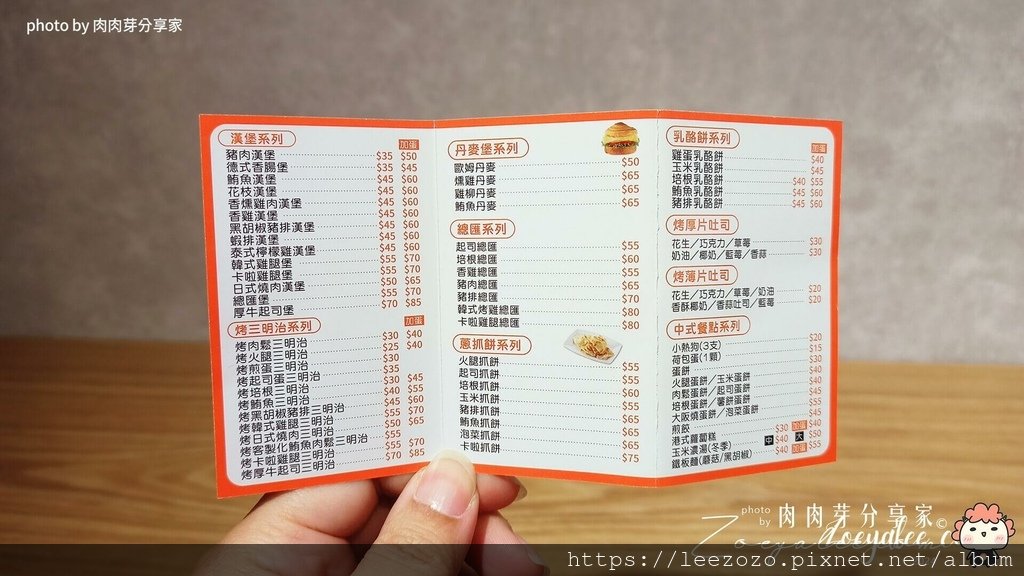 photo by 肉肉芽分享家
漢堡系列
加蛋
豬肉漢堡 $35 $50
德式香腸堡 $35 $45
鮪魚漢堡 $45 $60
花枝漢堡 $45 $60
香燻雞肉漢堡 $45 $60
香雞漢堡 $45 $60
黑胡椒豬排漢堡 $45 $60
蝦排漢堡 $45 $60
泰式檸檬雞漢堡 $45 $60
韓式雞腿堡 $55 $70
卡啦雞腿堡 $55 $70
日式燒肉漢堡 $50 $65
總匯堡 $55 $70
厚牛起司堡 $70 $85
烤三明治系列
加蛋
烤肉鬆三明治 $30 $40
烤火腿三明治 $25 $40
烤煎蛋三明治 $30
烤起司蛋三明治 $35
烤培根三明治 $30 $45
烤鮪魚三明治 $40 $55
烤黑胡椒豬排三明治 $45 $60
烤韓式雞腿三明治 $55 $70
烤日式燒肉三明治 $50 $65
烤客製化鮪魚肉鬆三明治 $55
烤卡啦雞腿三明治 $55 $70
烤厚牛起司三明治 $70 $85
丹麥堡系列
歐姆丹麥 $50
燻雞丹麥 $65
雞柳丹麥 $65
鮪魚丹麥 $65
總匯系列
起司總匯 $55
培根總匯 $60
香雞總匯 $55
豬肉總匯 $65
豬排總匯 $70
韓式烤雞總匯 $80
卡啦雞腿總匯 $80
蔥抓餅系列
火腿抓餅 $55
起司抓餅 $55
培根抓餅 $60
玉米抓餅 $55
豬排抓餅 $65
鮪魚抓餅 $65
泡菜抓餅 $65
卡啦抓餅 $75
乳酪餅系列
加蛋
雞蛋乳酪餅 $40
玉米乳酪餅 $45
培根乳酪餅 $40 $55
鮪魚乳酪餅 $45 $60
豬排乳酪餅 $45 $60
烤厚片吐司
花生／巧克力／草莓 $30
奶油／椰奶／藍莓／香蒜 $30
烤薄片吐司
花生／巧克力／草莓／奶油 $20
香酥椰奶／香蒜吐司／藍莓 $20
中式餐點系列
小熱狗(3支) $20
荷包蛋(1顆) $15
蛋餅 $30
火腿蛋餅／玉米蛋餅 $40
肉鬆蛋餅／起司蛋餅 $40
培根蛋餅／薯餅蛋餅 $45
大阪燒蛋餅／泡菜蛋餅 $45
煎餃 $30
港式蘿蔔糕 $30 加蛋 $40
玉米濃湯(冬季) 中 $40 大 $50
鐵板麵(蘑菇/黑胡椒) $40 加蛋 $55
photo by 肉肉芽分享家©
https://leezozo.pixnet.net/album